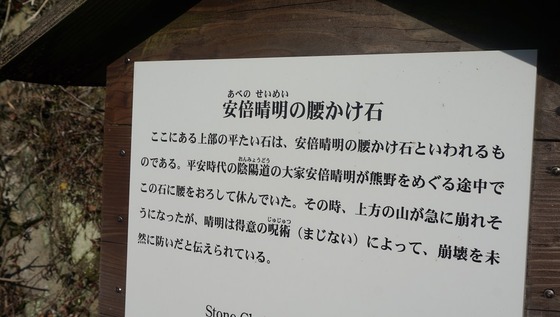 あべの せいめい
安倍晴明の腰かけ石
ここにある上部の平たい石は、安倍晴明の腰かけ石といわれるも
おんみょうどう
のである。平安時代の陰陽道の大家安倍晴明が熊野をめぐる途中で
この石に腰をおろして休んでいた。その時、上方の山が急に崩れそ
じゅじゅつ
うになったが、晴明は得意の呪術（まじない）によって、崩壊を未
然に防いだと伝えられている。
Stone